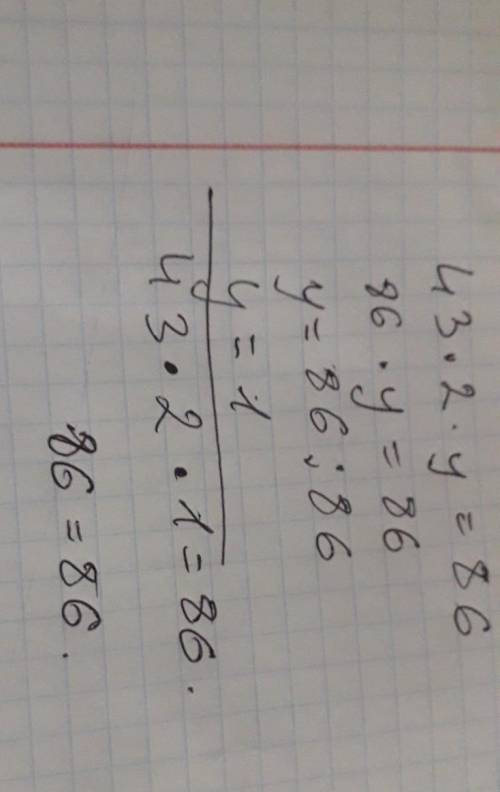 43 · 2 · y = 86
86 · y = 86
y = 86 : 86
y = 1
43 · 2 · 1 = 86.
86 = 86.